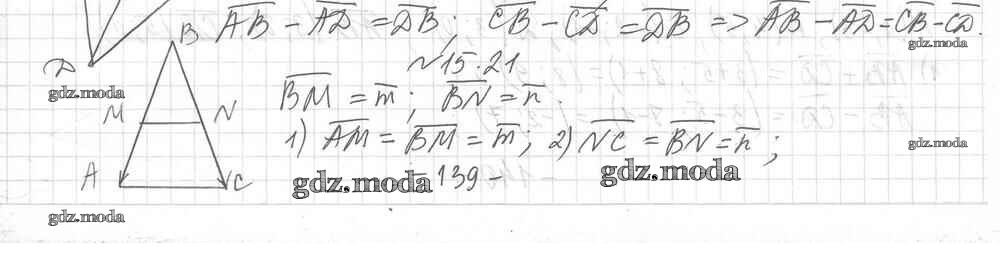 AB - AD = DB; CB - CD = DB => AB - AD = CB - CD.
D B
gdz.moda
gdz.moda
№15.21
BM = m; BN = n.
M N
1) AM = BM = m; 2) NC = BN = n;
gdz.moda
A C
gdz.moda - 139 - gdz.moda
gdz.moda